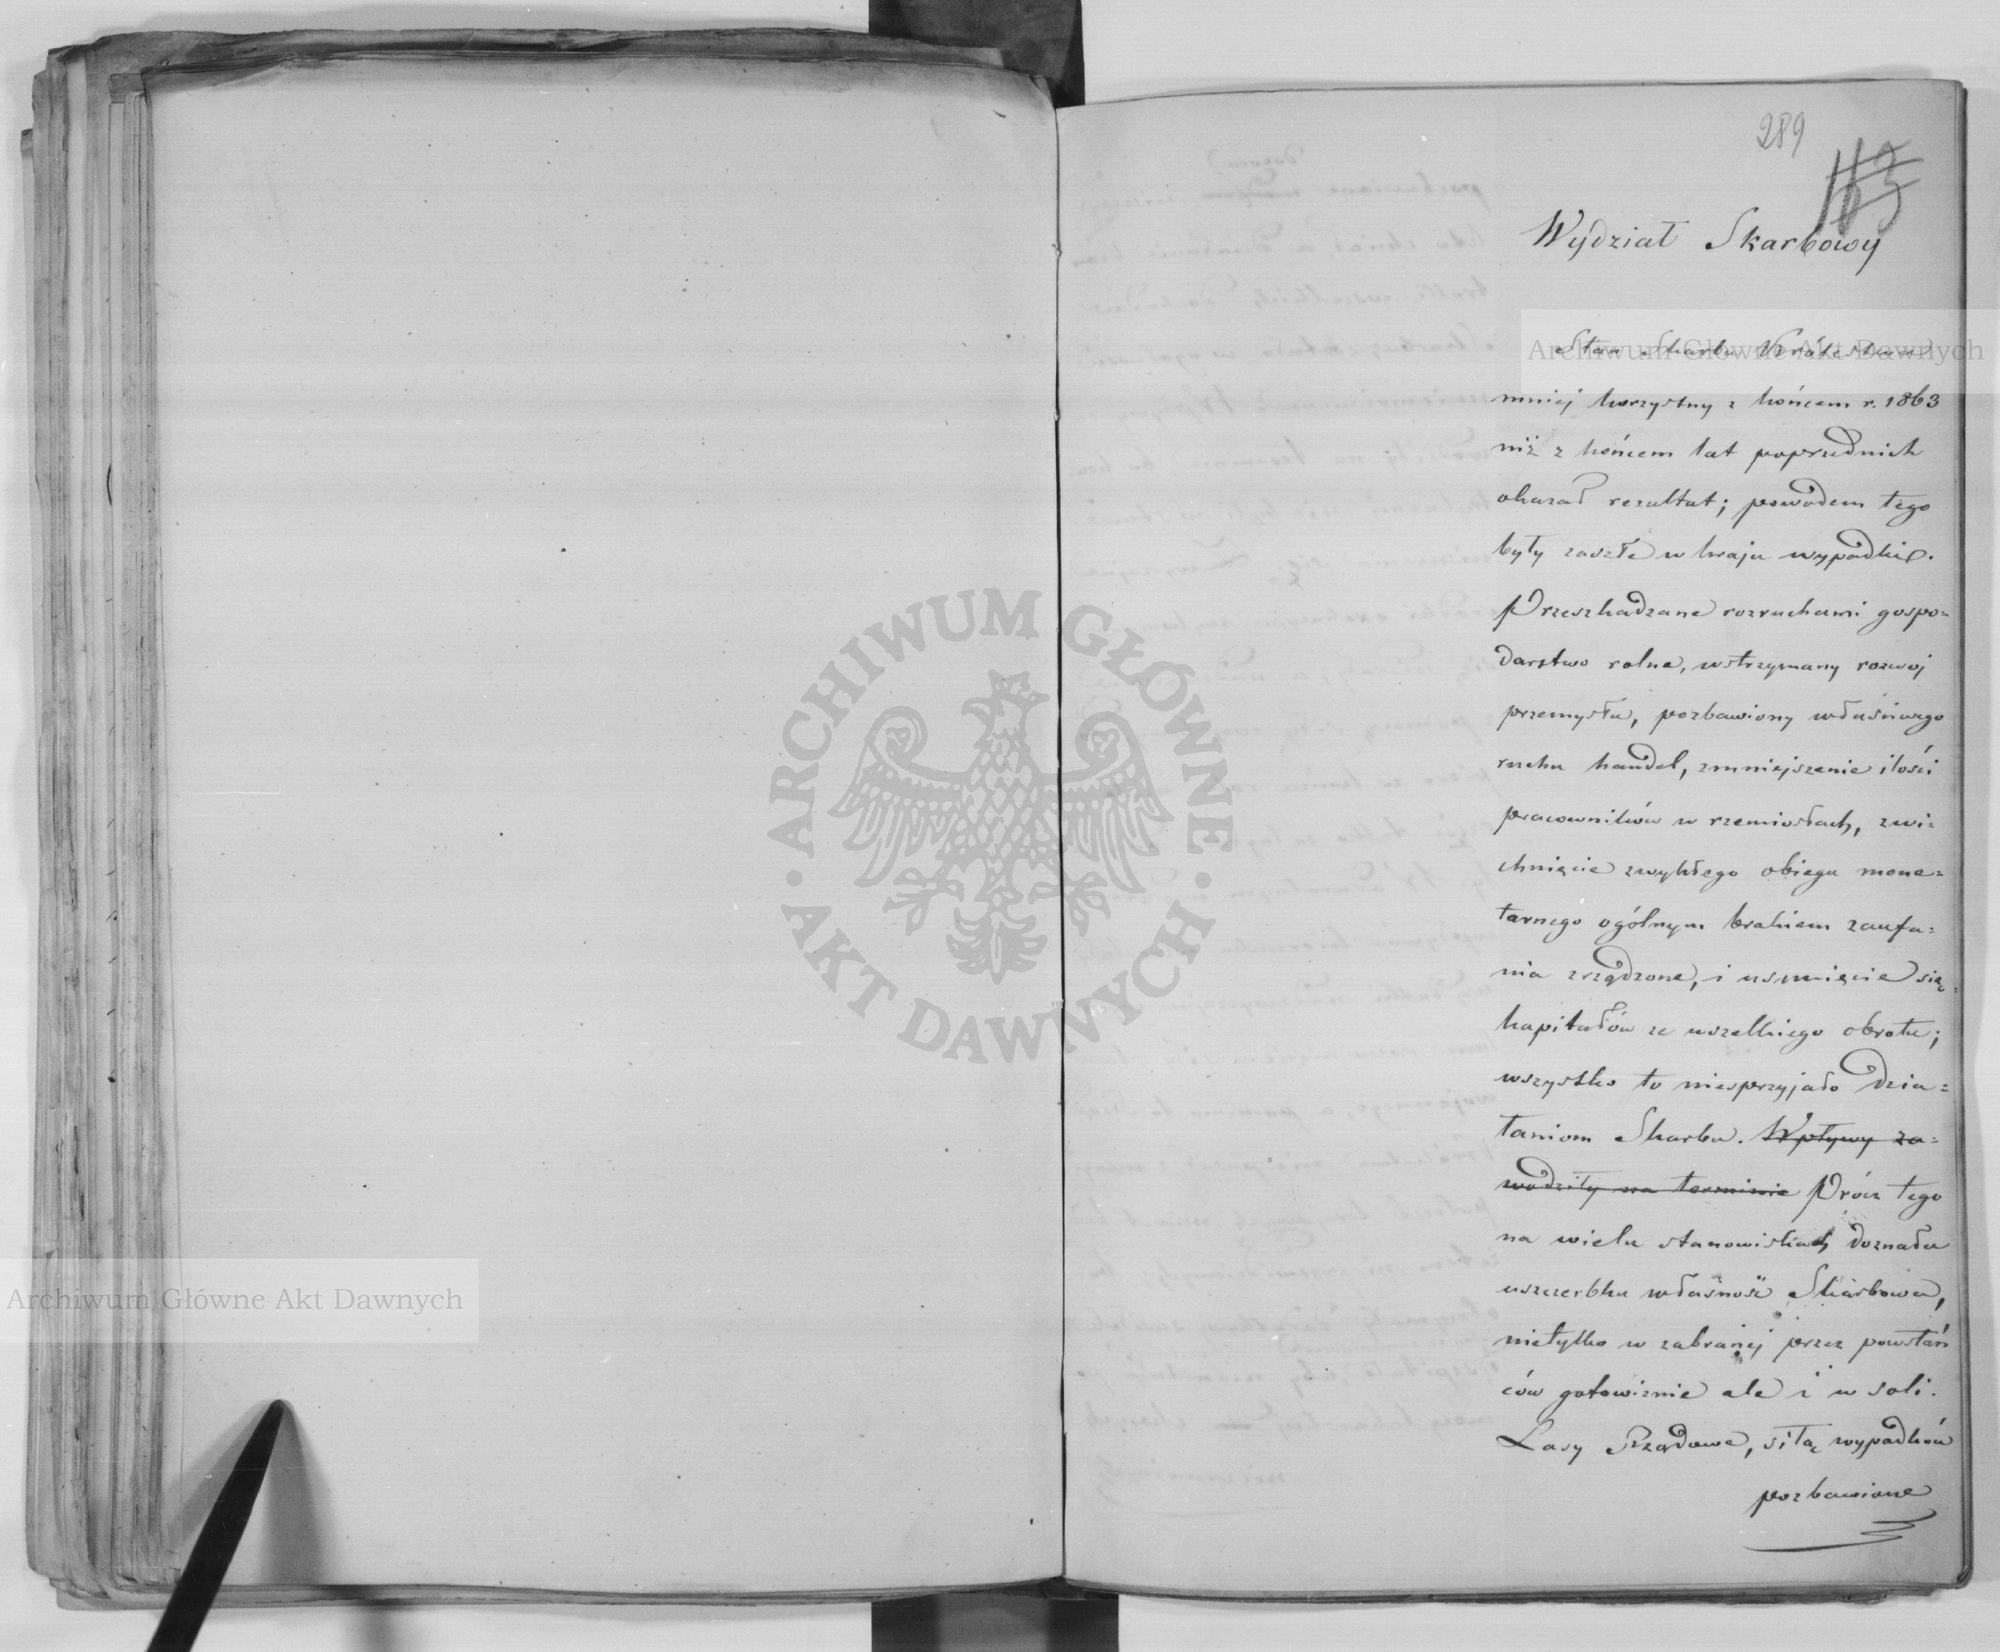 289
163
Wydział Skarbowy
Stan Skarbu Królestwa
mniej korzystny z końcem r. 1863
niż z końcem lat poprzednich
okazał rezultat; powodem tego
były zaszłe w kraju wypadki.
Przeszkadzane rozruchami gospo=
darstwo rolne, wstrzymany rozwój
przemysłu, pozbawiony właściwego
ruchu handel, zmniejszenie ilości
pracowników w rzemiosłach, zwi=
chnięcie zwykłego obiegu mone=
tarnego ogólnym brakiem zaufa=
nia zrządzone, i usunięcie się
kapitałów ze wszelkiego obrotu;
wszystko to niesprzyjało dzia=
łaniom Skarbu. Wpływy za=
wodziły na terminie Prócz tego
na wielu stanowiskach doznała
uszczerbku własność Skarbowa,
nietylko w zabranej przez powstań
ców gotowiznie ale i w soli.
Lasy Rządowe, siłą wypadków
pozbawione
Archiwum Główne Akt Dawnych
Archiwum Główne Akt Dawnych
ARCHIWUM GŁÓWNE
AKT DAWNYCH